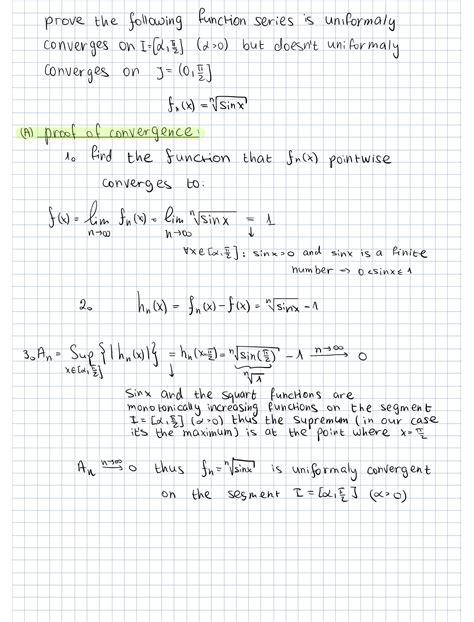 prove the following function series is uniformaly
converges on I=[α,π/2] (α>0) but doesn't uniformaly
converges on J=(0,π/2]
fₓ(x) = ⁿ√sinx
(A) proof of convergence:
1. find the function that fₙ(x) pointwise
converges to:
f(x) = lim n→∞ fₙ(x) = lim n→∞ ⁿ√sinx = 1
↓
∀x∈[α,π/2] : sinx>0 and sinx is a finite
number → 0<sinx≤1
2. hₙ(x) = fₙ(x) - f(x) = ⁿ√sinx - 1
3. Aₙ = Sup x∈[α,π/2] {|hₙ(x)|} = hₙ(x=π/2) = ⁿ√sin(π/2) - 1 n→∞ → 0
↓ ⁿ√1
Sinx and the squart functions are
monotonically increasing functions on the segment
I=[α,π/2] (α>0) thus the supremum (in our case
it's the maximum) is at the point where x=π/2
Aₙ n→∞ → 0 thus fₙ=ⁿ√sinx is uniformaly convergent
on the segment I=[α,π/2] (α>0)